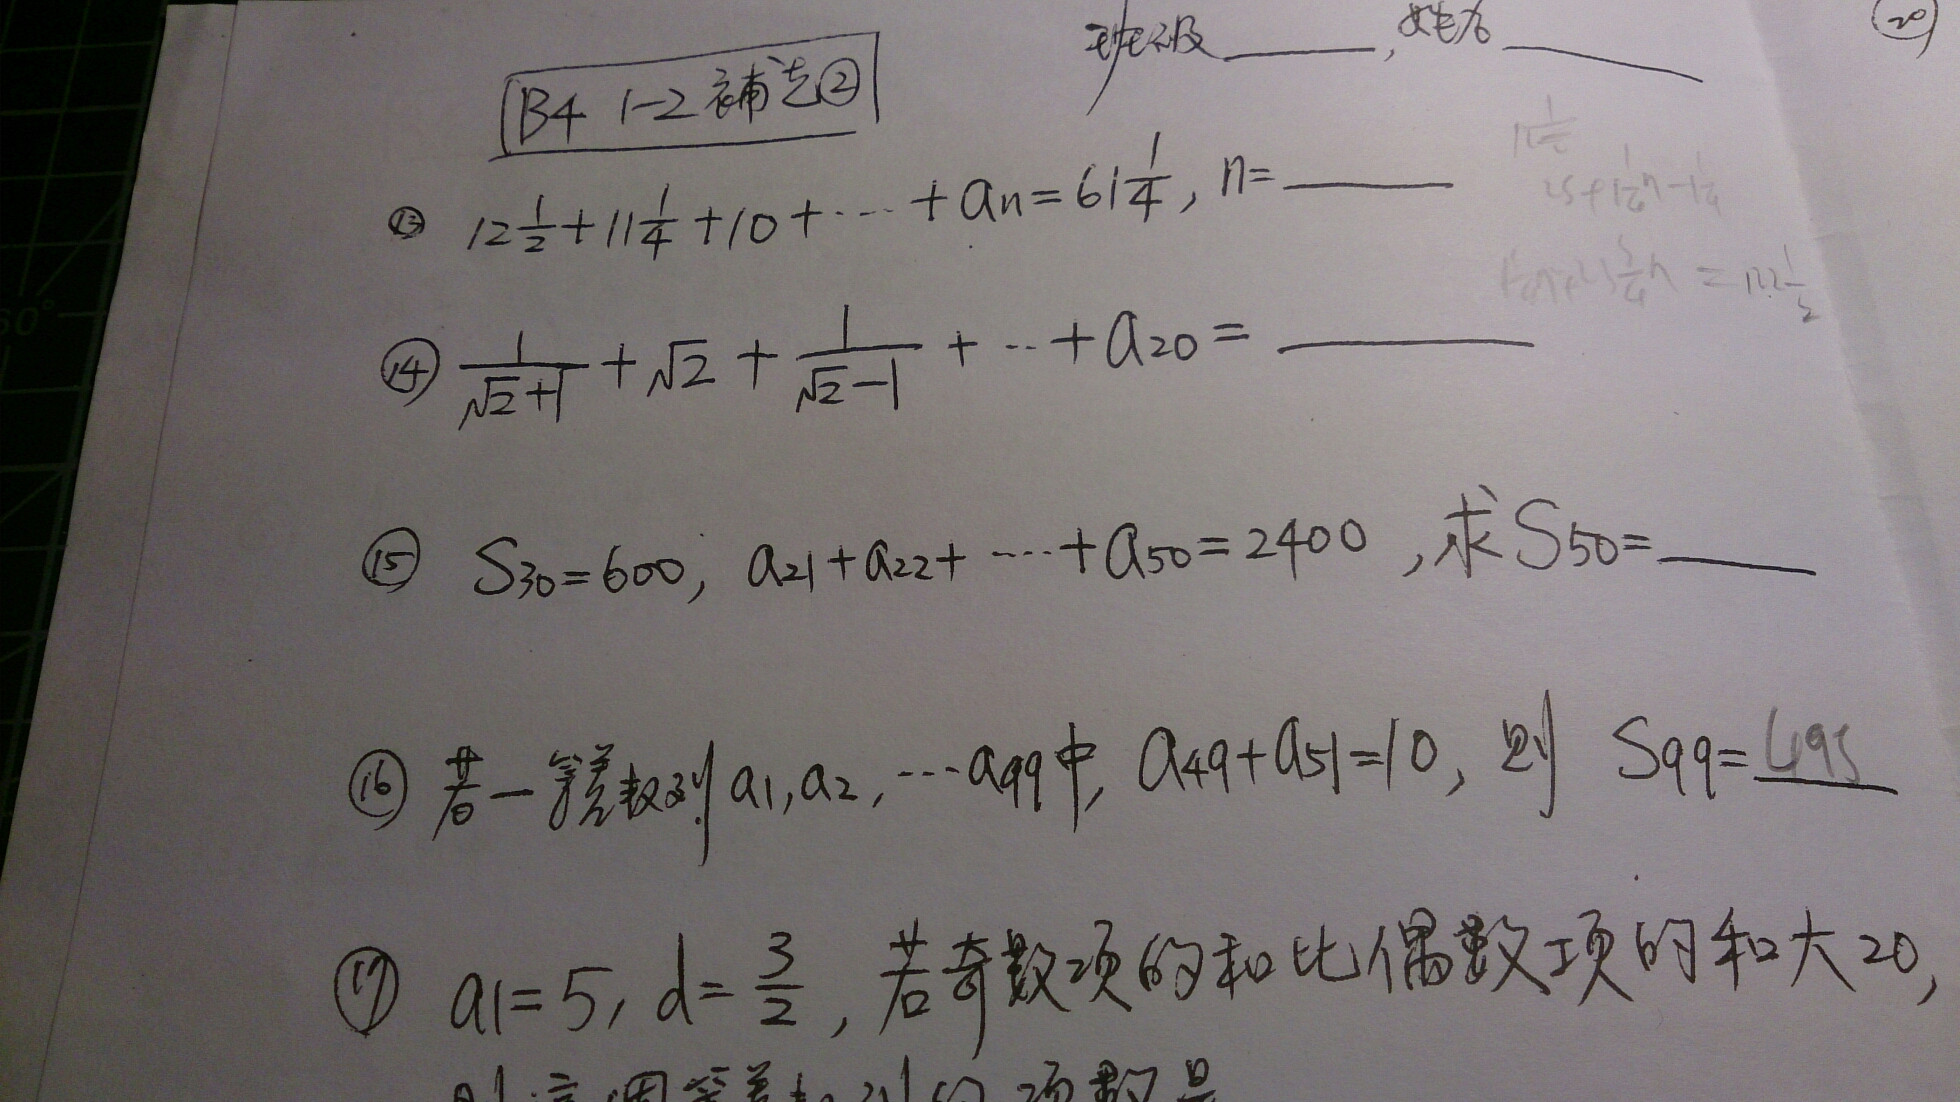 班級______, 姓名______
20
B4 1-2 補充②
⑬ 12 1/2 + 11 1/4 + 10 + ‥‥ + an = 61 1/4, n = ______
25 + 1 1/4 n - 1 1/4
= 122 1/2
⑭ 1/(√2+1) + √2 + 1/(√2-1) + ‥‥ + a20 = ______
⑮ S30 = 600, a21 + a22 + ‥‥ + a50 = 2400, 求 S50 = ______
⑯ 若一等差數列 a1, a2, ‥‥ a99 中, a49 + a51 = 10, 則 S99 = 495
⑰ a1 = 5, d = 3/2, 若奇數項的和比偶數項的和大20,
則這個等差數列的項數是